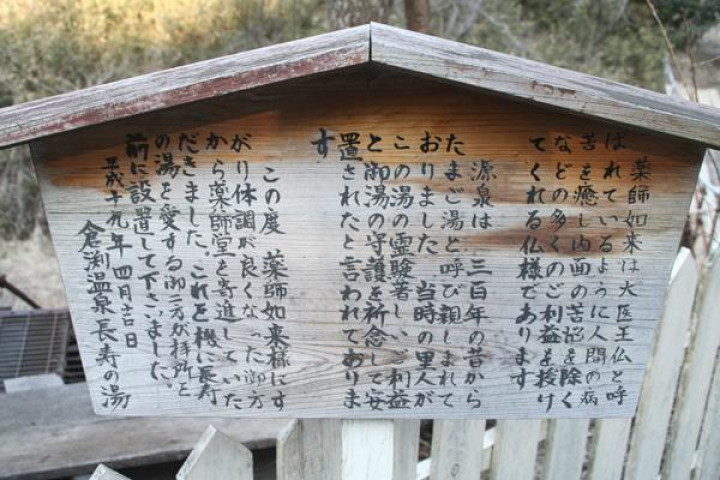 薬師如来は大医王仏と呼
ばれているように人間の病
苦を癒し内面の苦悩を除く
などの多くのご利益を授け
てくれる仏様であります
源泉は、三百年の昔から
たまご湯と呼び親しまれて
おりました。当時の里人が
この湯の霊験著しいご利益
と御湯の守護を祈念して安
置されたと言われておりま
す
この度 薬師如来様にす
がり体調が良くなった御方
から薬師堂を寄進していた
だきました。これを機に長寿
の湯を愛する御二方が拝所を
前に設置して下さいました。
平成十九年 四月吉日
倉渕温泉長寿の湯